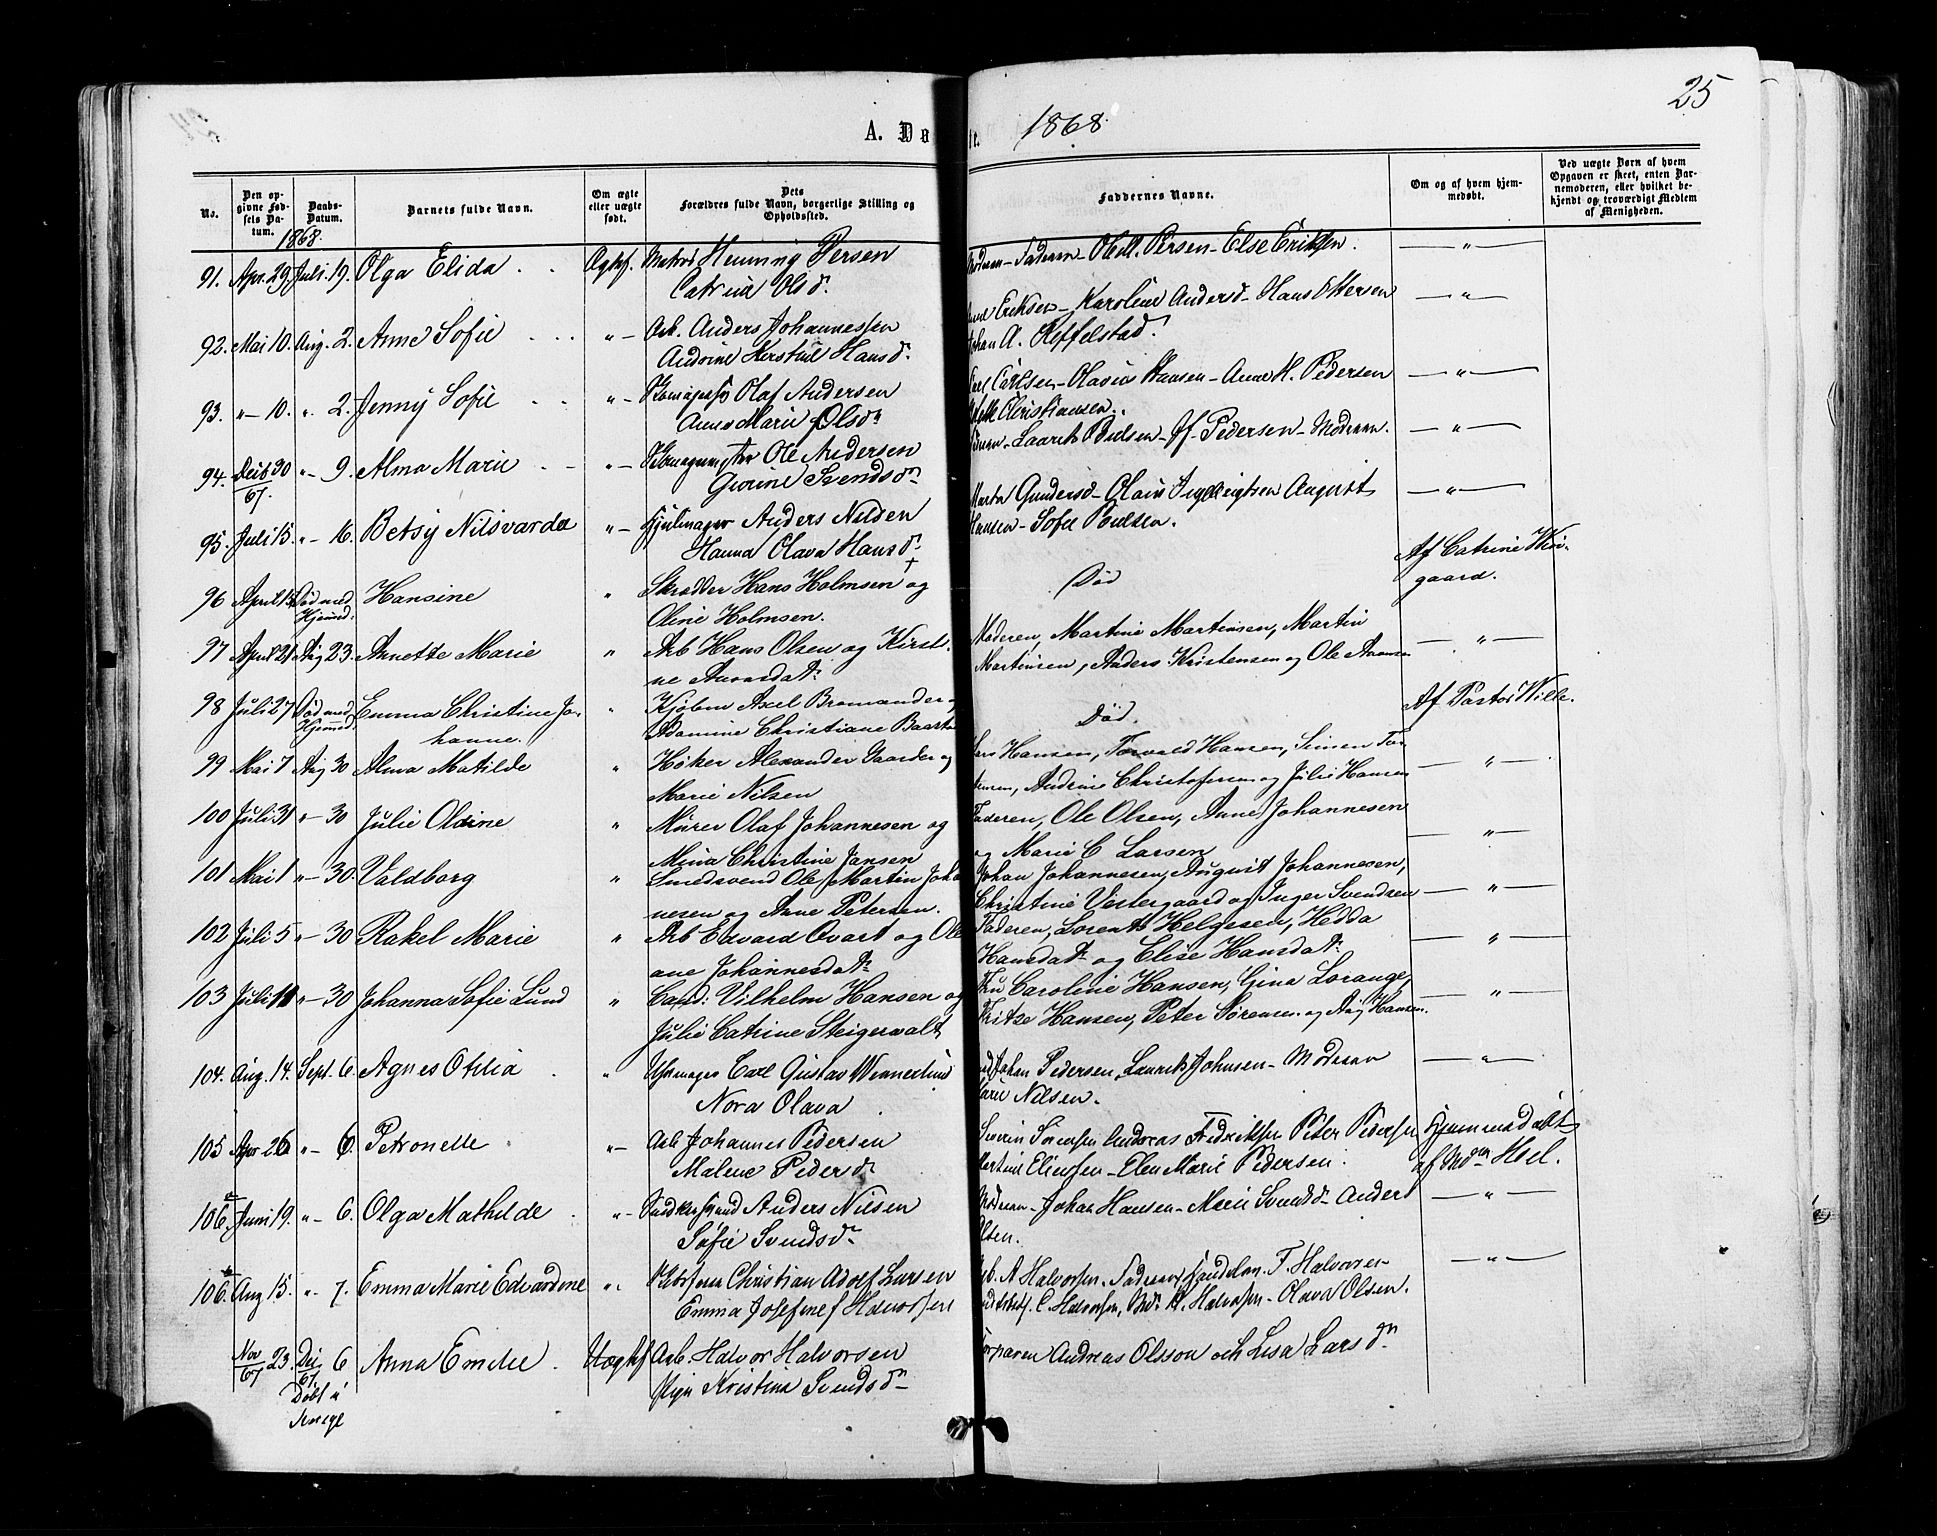 25
A. Dø
te.
1868
No.
Den op-
givne Fød-
sels Da-
tum.
Daabs-
Datum.
Barnets fulde Navn.
Om ægte
eller uægte
født.
Dets
Forældres fulde Navn, borgerlige Stilling og
Opholdssted.
Faddernes Navne.
Om og af hvem hjem-
medøbt.
Ved uægte Børn af hvem
Opgaven er skeet, enten Bar-
nemoderen, eller hvilket be-
kjendt og troværdigt Medlem
af Menigheden.
1868.
91. Apr. 29. Juli 19. Olga Elida Ægtef. Henning Persen Moderen - Faderen - Persen - Else Eriksen. — " —
Catrine Olsd.
92. Mai 10. Aug. 2. Anne Sofie " — Arb. Anders Johannessen Eriksen - Karoline Andersd - Hans Ottersen — " —
Andrine Kerstine Hansd. Johan A. Keffelstad.
93. " — 10. " 2. Jenny Sofie " — Olaf Andersen Carl Carlsen - Olavus Hansen - Anne M. Pedersen — " —
Anne Marie Olsd. Christiansen.
94. Decb 30 " — 9. Alma Marie " — Ole Andersen Laurits Poulsen - Pedersen - Moderen. — " —
67. Svendsd. Marta Gundersd - August — " —
95. Juli 15. " — 16. Betsy Nilsvarda " — Hjulmager Anders Nilsen Hansen - Sofie Poulsen.
Hanna Olava Hansd. Af Catrine Wen-
96 April 15 Død med Hansine " Skrædder Hans Holmsen + og Død gaard.
Hjemed: Oline Holmsen.
97 April 21 Aug 23. Annette Marie " Arb Hans Olsen og Kirsti- Moderen, Martine Martinsen, Martin — " —
ne Martinsen, Anders Kristensen og Ole
98 Juli 27 Død med Emma Christine Jo- " Kjøbm Axel Bromander og Død. Af Pastor Wille.
Hjemed. hanne. Adamine Christiane Baarts
99 Mai 7 Aug 30 Alma Matilde " Høker Alexander Gaarder og Hansen, Torvald Hansen, Simen Tor — " —
Marie Nilsen Andrine Christofersen og Julie Hansen
100 Juli 31 " — 30 Julie Oldine " Murer Olaf Johannesen og Faderen, Ole Olsen, Anne Johannesen — " —
Mina Christine Jansen og Marie C Larsen
101 Mai 1 " — 30. Valdborg " Smedsvend Ole Martin Joha Johan Johannesen, August Johannesen, — " —
nesen og Anne Petersen. Christine Vestergaard og Inger Svendsen
102 Juli 5 " — 30 Rakel Marie " Arb Edvard Qvart og Ole Faderen, Lorents Helgesen, Hedda — " —
ane Johannesdatr Hansdatr og Elise Hansdatr
103 Juli 11 " — 30 Johanna Sofie Lund " Cand: Vilhelm Hansen og Fru Caroline Hansen, Gina Lorange, — " —
Julie Catrine Steigerwalt Fritze Hansen, Peter Sørensen og Aug Hansen.
104. Aug. 14. Sept. 6. Agnes Otilia " Carl Gustav Wennerlund Johan Pedersen, Laurits Johnsen - Moderen — " —
Nora Olava Marie Nilsen.
105 Apr 26 " — 6. Petronelle " — Arb Johannes Pedersen Severin Sørensen Andreas Fredriksen Peter Pedersen Hjemmedøbt
Malene Pedersd Martine - Elen Marie Pedersen. af Hoel.
a
106. Juni 19. " — 6. Olga Mathilde " — Anders Nilsen Moderen - Johan Hansen - Marie Svendsd - Anders — " —
Sofie Svendsd Olsen.
b
106. Aug 15. " — 7. Emma Marie Edvardine " — Christian Adolf Larsen A Halvorsen, Faderen, T. Halvorsen — " —
Emma Josefine Halvorsen C. Halvorsen, Halvorsen - Olava Olsen.
Nov 23. Dec 6 Anna Emelie. Uægtef Arb. Halvor Halvorsen Torparen Andreas Olsson och Lisa Larsdr
67 67. Pige Kristina Svendsd
Døbt i
Sverige